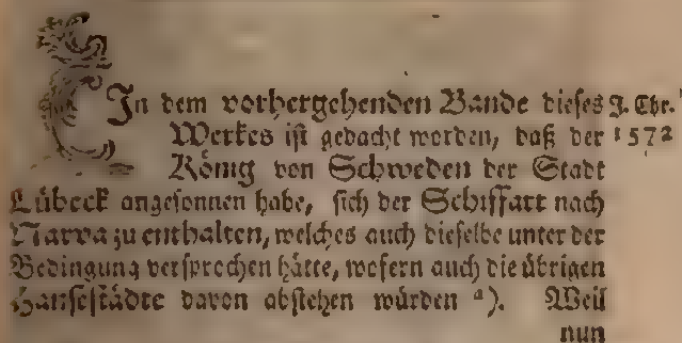 In dem vorhergehenden Bande dieses J. Chr.
Werkes ist gedacht worden, daß der 1572
König von Schweden der Stadt
Lübeck angesonnen habe, sich der Schiffart nach
Narva zu enthalten, welches auch dieselbe unter der
Bedingung versprochen hätte, wofern auch die übrigen
Hansestädte davon abstehen würden a). Weil
nun